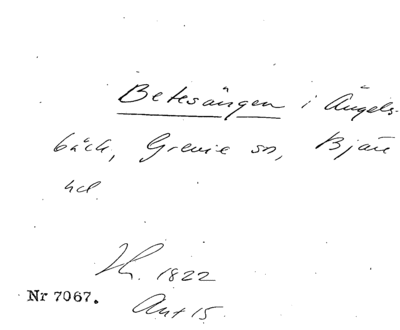 Betesängen i Ängels-
bäck, Grevie sn, Bjäre
hd.
Th. 1822
Nr 7067.
Ant 15.